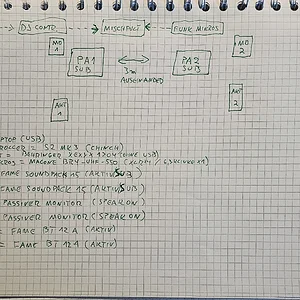 DJ CONTR. MISCHPULT FUNK MIKROS.
MO 1 MO 2
PA1 SUB PA2 SUB
3m
AUSEINANDER
ANT 1 ANT 2
PTOP (USB)
ROLLER = S2 MK3 (CHINCH)
= BEHRINGER XENYX 1204 (OHNE USB)
KROS =
FAME SOUNDPACK 15 (AKTIV SUB)
FAME SOUNDPACK 15 (AKTIV SUB)
PASSIVER MONITOR (SPEAKON)
PASSIVER MONITOR (SPEAKON)
= FAME BT 12 A (AKTIV)
= FAME BT 12A (AKTIV)